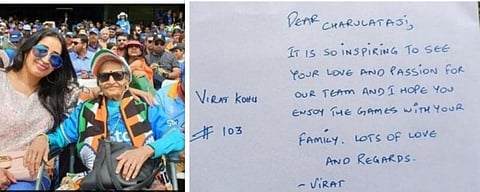 DEAR CHARULATAJI,
IT IS SO INSPIRING TO SEE
YOUR LOVE AND PASSION FOR
OUR TEAM AND I HOPE YOU
ENJOY THE GAMES WITH YOUR
FAMILY. LOTS OF LOVE
AND REGARDS.
- VIRAT
VIRAT KOHLI
# 103